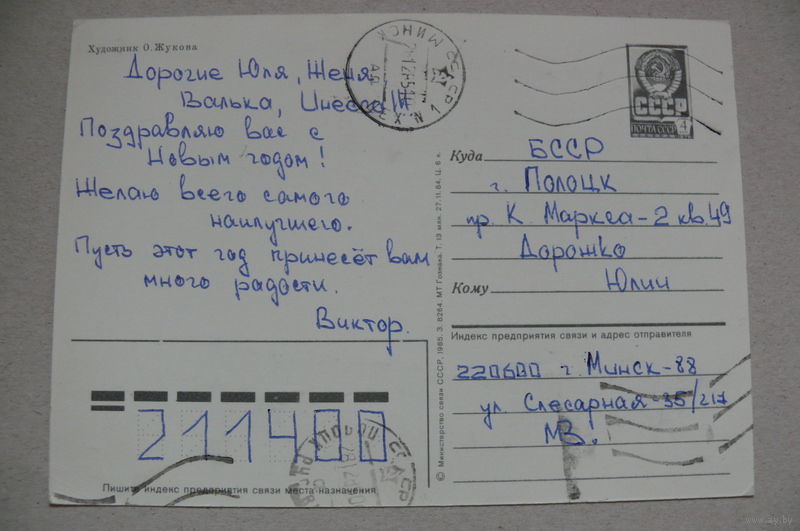 Художник О. Жукова
Дорогие Юля, Женя,
Валька, Инесса!!!
Поздравляю вас с
Новым годом!
Желаю всего самого
наилучшего.
Пусть этот год принесёт вам
много радости.
Виктор.
МИНСК
СССР
ПОЧТА СССР
4
Куда БССР
г. Полоцк
пр. К. Маркса-2 кв. 49
Дорошко
Кому Юлии
Индекс предприятия связи и адрес отправителя
220600 г. Минск-88
ул. Слесарная-35/217
МВ.
© Министерство связи СССР, 1985. З. 8264. МТ Гознака. Т. 13 млн. 27.11.84. Ц. 6 к.
211400
Пишите индекс предприятия связи места назначения
www.ay.by